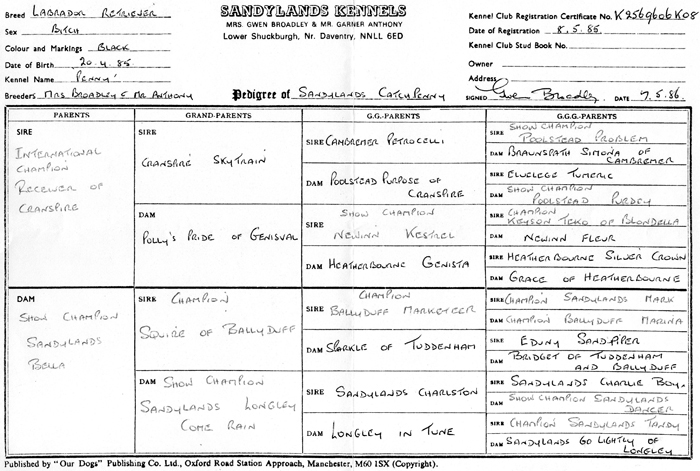 Breed LABRADOR RETRIEVER
Sex BITCH
Colour and Markings BLACK
Date of Birth 20.4.85
Kennel Name "PENNY"
Breeders MRS BROADLEY & MR ANTHONY
SANDYLANDS KENNELS
MRS. GWEN BROADLEY & MR. GARNER ANTHONY
Lower Shuckburgh, Nr. Daventry, NNLL 6ED
Pedigree of SANDYLANDS CATCHPENNY
Kennel Club Registration Certificate No. K2569606K08
Date of Registration 8.5.85
Kennel Club Stud Book No.
Owner
Address
SIGNED Gwen Broadley DATE 7.5.86.
PARENTS
GRAND-PARENTS
G.G.-PARENTS
G.G.G.-PARENTS
SIRE
INTERNATIONAL
CHAMPION
RECEIVER OF
CRANSPIRE
DAM
SHOW CHAMPION
SANDYLANDS
BELLA
SIRE
CRANSPIRE SKYTRAIN
DAM
POLLY'S PRIDE OF GENISVAL
SIRE CHAMPION
SQUIRE OF BALLYDUFF
DAM SHOW CHAMPION
SANDYLANDS LONGLEY
COME RAIN
SIRE CAMBREMER PETROCELLI
DAM POOLSTEAD PURPOSE OF
CRANSPIRE
SHOW CHAMPION
SIRE
NEWINN KESTREL
DAM HEATHERBOURNE GENISTA
CHAMPION
SIRE BALLYDUFF MARKETEER
DAM SPARKLE OF TUDDENHAM
SIRE SANDYLANDS CHARLSTON
DAM LONGLEY IN TUNE
SHOW CHAMPION
SIRE POOLSTEAD PROBLEM
DAM BRAUNSPATH SIMONA OF
CAMBREMER
SIRE ELUELEGE TUMERIC
DAM SHOW CHAMPION
POOLSTEAD PURDEY
SIRE CHAMPION
KEYSON TEKO OF BLONDELLA
DAM NEWINN FLEUR
SIRE HEATHERBOURNE SILVER CROWN
DAM GRACE OF HEATHERBOURNE
SIRE CHAMPION SANDYLANDS MARK
DAM CHAMPION BALLYDUFF MARINA
SIRE EDUNY SANDPIPER
DAM BRIDGET OF TUDDENHAM
AND BALLYDUFF
SIRE SANDYLANDS CHARLIE BOY.
DAM SHOW CHAMPION SANDYLANDS
DANCER
SIRE CHAMPION SANDYLANDS TANDY
DAM SANDYLANDS GO LIGHTLY OF
LONGLEY
Published by "Our Dogs" Publishing Co. Ltd., Oxford Road Station Approach, Manchester, M60 1SX (Copyright).